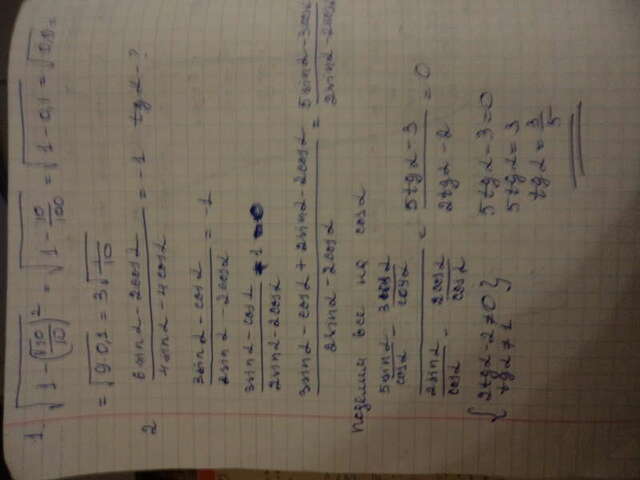 1. √(1 - (√10/10)²) = √(1 - 10/100) = √(1 - 0,1) = √0,9 =
= √(9·0,1) = 3√(1/10)
2 (6sinα - 2cosα)/(4sinα - 4cosα) = -1 tgα - ?
(3sinα - cosα)/(2sinα - 2cosα) = -1
(3sinα - cosα)/(2sinα - 2cosα) + 1 = 0
(3sinα - cosα + 2sinα - 2cosα)/(2sinα - 2cosα) = (5sinα - 3cosα)/(2sinα - 2cosα)
Поделим все на cosα
(5sinα/cosα - 3cosα/cosα)/(2sinα/cosα - 2cosα/cosα) = (5tgα - 3)/(2tgα - 2) = 0
{ 2tgα - 2 ≠ 0 } 5tgα - 3 = 0
tgα ≠ 1 5tgα = 3
tgα = 3/5